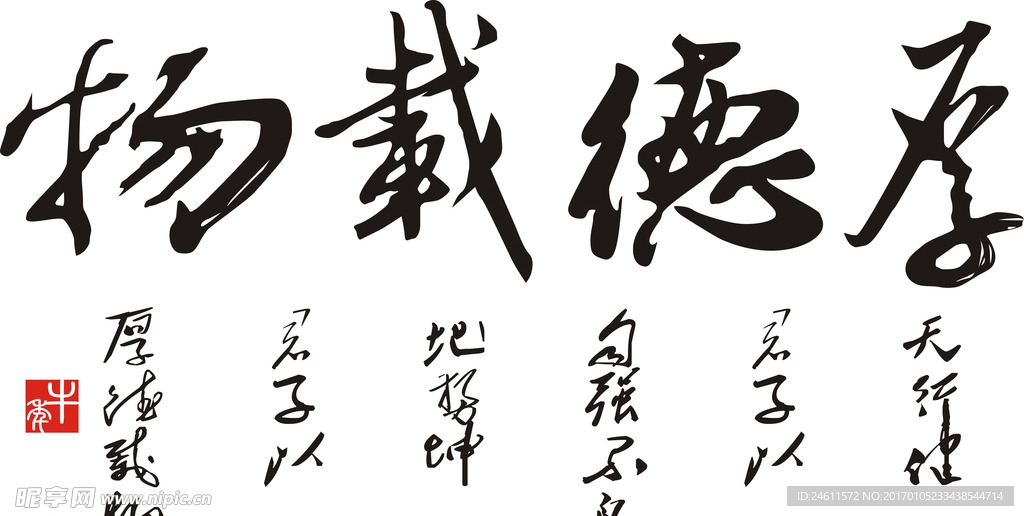 厚德载物
天行健
君子以
自强不息
地势坤
君子以
厚德载物
昵享网 www.nipic.cn
ID:24611572 NO:20170105233438544714